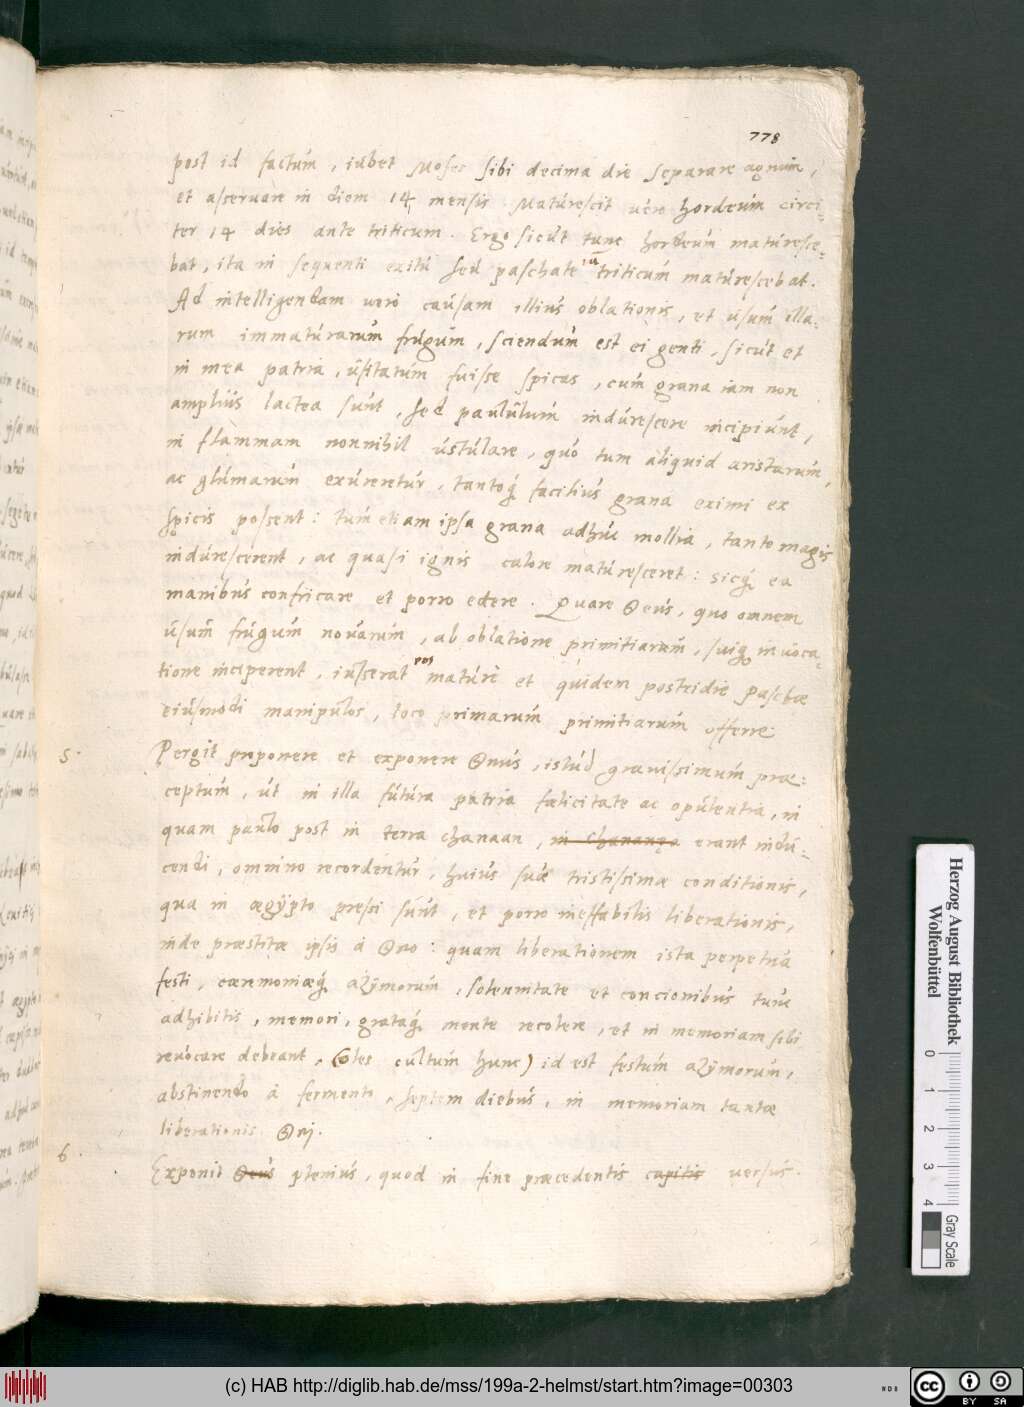 778
post id factum, iubet Moses sibi decima die separare agnum,
et asservare in diem 14 mensis. Maturescit vero hordeum circi-
ter 14 dies ante triticum. Ergo sicut tunc hordeum maturesce-
bat, ita in sequenti exitu seu paschate iā triticum maturescebat.
Ad intelligendam vero causam illius oblationis, et usum illa-
rum immaturarum frugum, sciendum est ei genti, sicut et
in mea patria, usitatum fuisse spicas, cum grana iam non
amplius lactea sunt, sed paululum indurescere incipiunt,
in flammam nonnihil ustulare, quo tum aliquid aristarum,
ac glumarum exureretur, tantoq́ facilius grana eximi ex
spicis possent: tum etiam ipsa grana adhuc mollia, tanto magis
indurescerent, ac quasi ignis calore maturesceret: sicq́ ea
manibus confricare et porro edere. Quare Deus, quo omnem
usum frugum novarum, ab oblatione primitiarum, suiq́ invoca-
tione inciperent, iusserat eos mature et quidem postridie Paschae
eiusmodi manipulos, loco primarum primitiarum offerre.
5. Pergit proponere et exponere Dnus, istud gravissimum prae-
ceptum, ut in illa futura patria faelicitate ac opulentia, in
quam paulo post in terra Chanaan, in Chananea erant indu-
cendi, omnino recordentur, huius suae tristissimae conditionis,
qua in aegypto pressi sunt, et porro ineffabilis liberationis,
inde praestitae ipsis à Dno: quam liberationem ista perpetua
festi, caeremoniaeq́ azymorum, solennitate et concionibus tunc
adhibitis, memori, grataq́ mente recolere, et in memoriam sibi
revocare debeant, Coles cultum hunc) id est festum azymorum,
abstinendo à fermento, septem diebus, in memoriam tantae
liberationis Dnj.
6. Exponit Deus plenius, quod in fine praecedentis capitis versus
Herzog August Bibliothek
Wolfenbüttel
0 1 2 3 4
Gray Scale
(c) HAB http://diglib.hab.de/mss/199a-2-helmst/start.htm?image=00303
cc BY SA